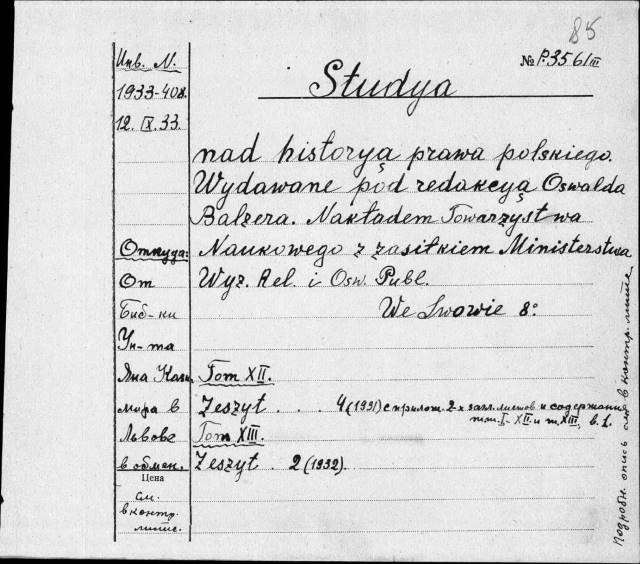 85
№ P.356/III
Studya
nad historyą prawa polskiego.
Wydawane pod redakcyą Oswalda
Balzera. Nakładem Towarzystwa
Naukowego z zasiłkiem Ministerstwa
Wyz. Rel. i Osw. Publ.
We Lwowie 8:
Tom XII.
Zeszyt . . . 4 (1931) с прилож. 2-х загл. листов и содержани
т.т. I-XII и т. XIII, в. 1.
Tom XIII.
Zeszyt . 2 (1932).
Инв. N.
1933-408.
12. IX. 33.
Откуда:
От
Биб-ки
Ун-та
Яна Кази
мира в
Львове
в обмен.
Цена
см.
в контр.
листе.
Подробн. опись см. в контр. листе